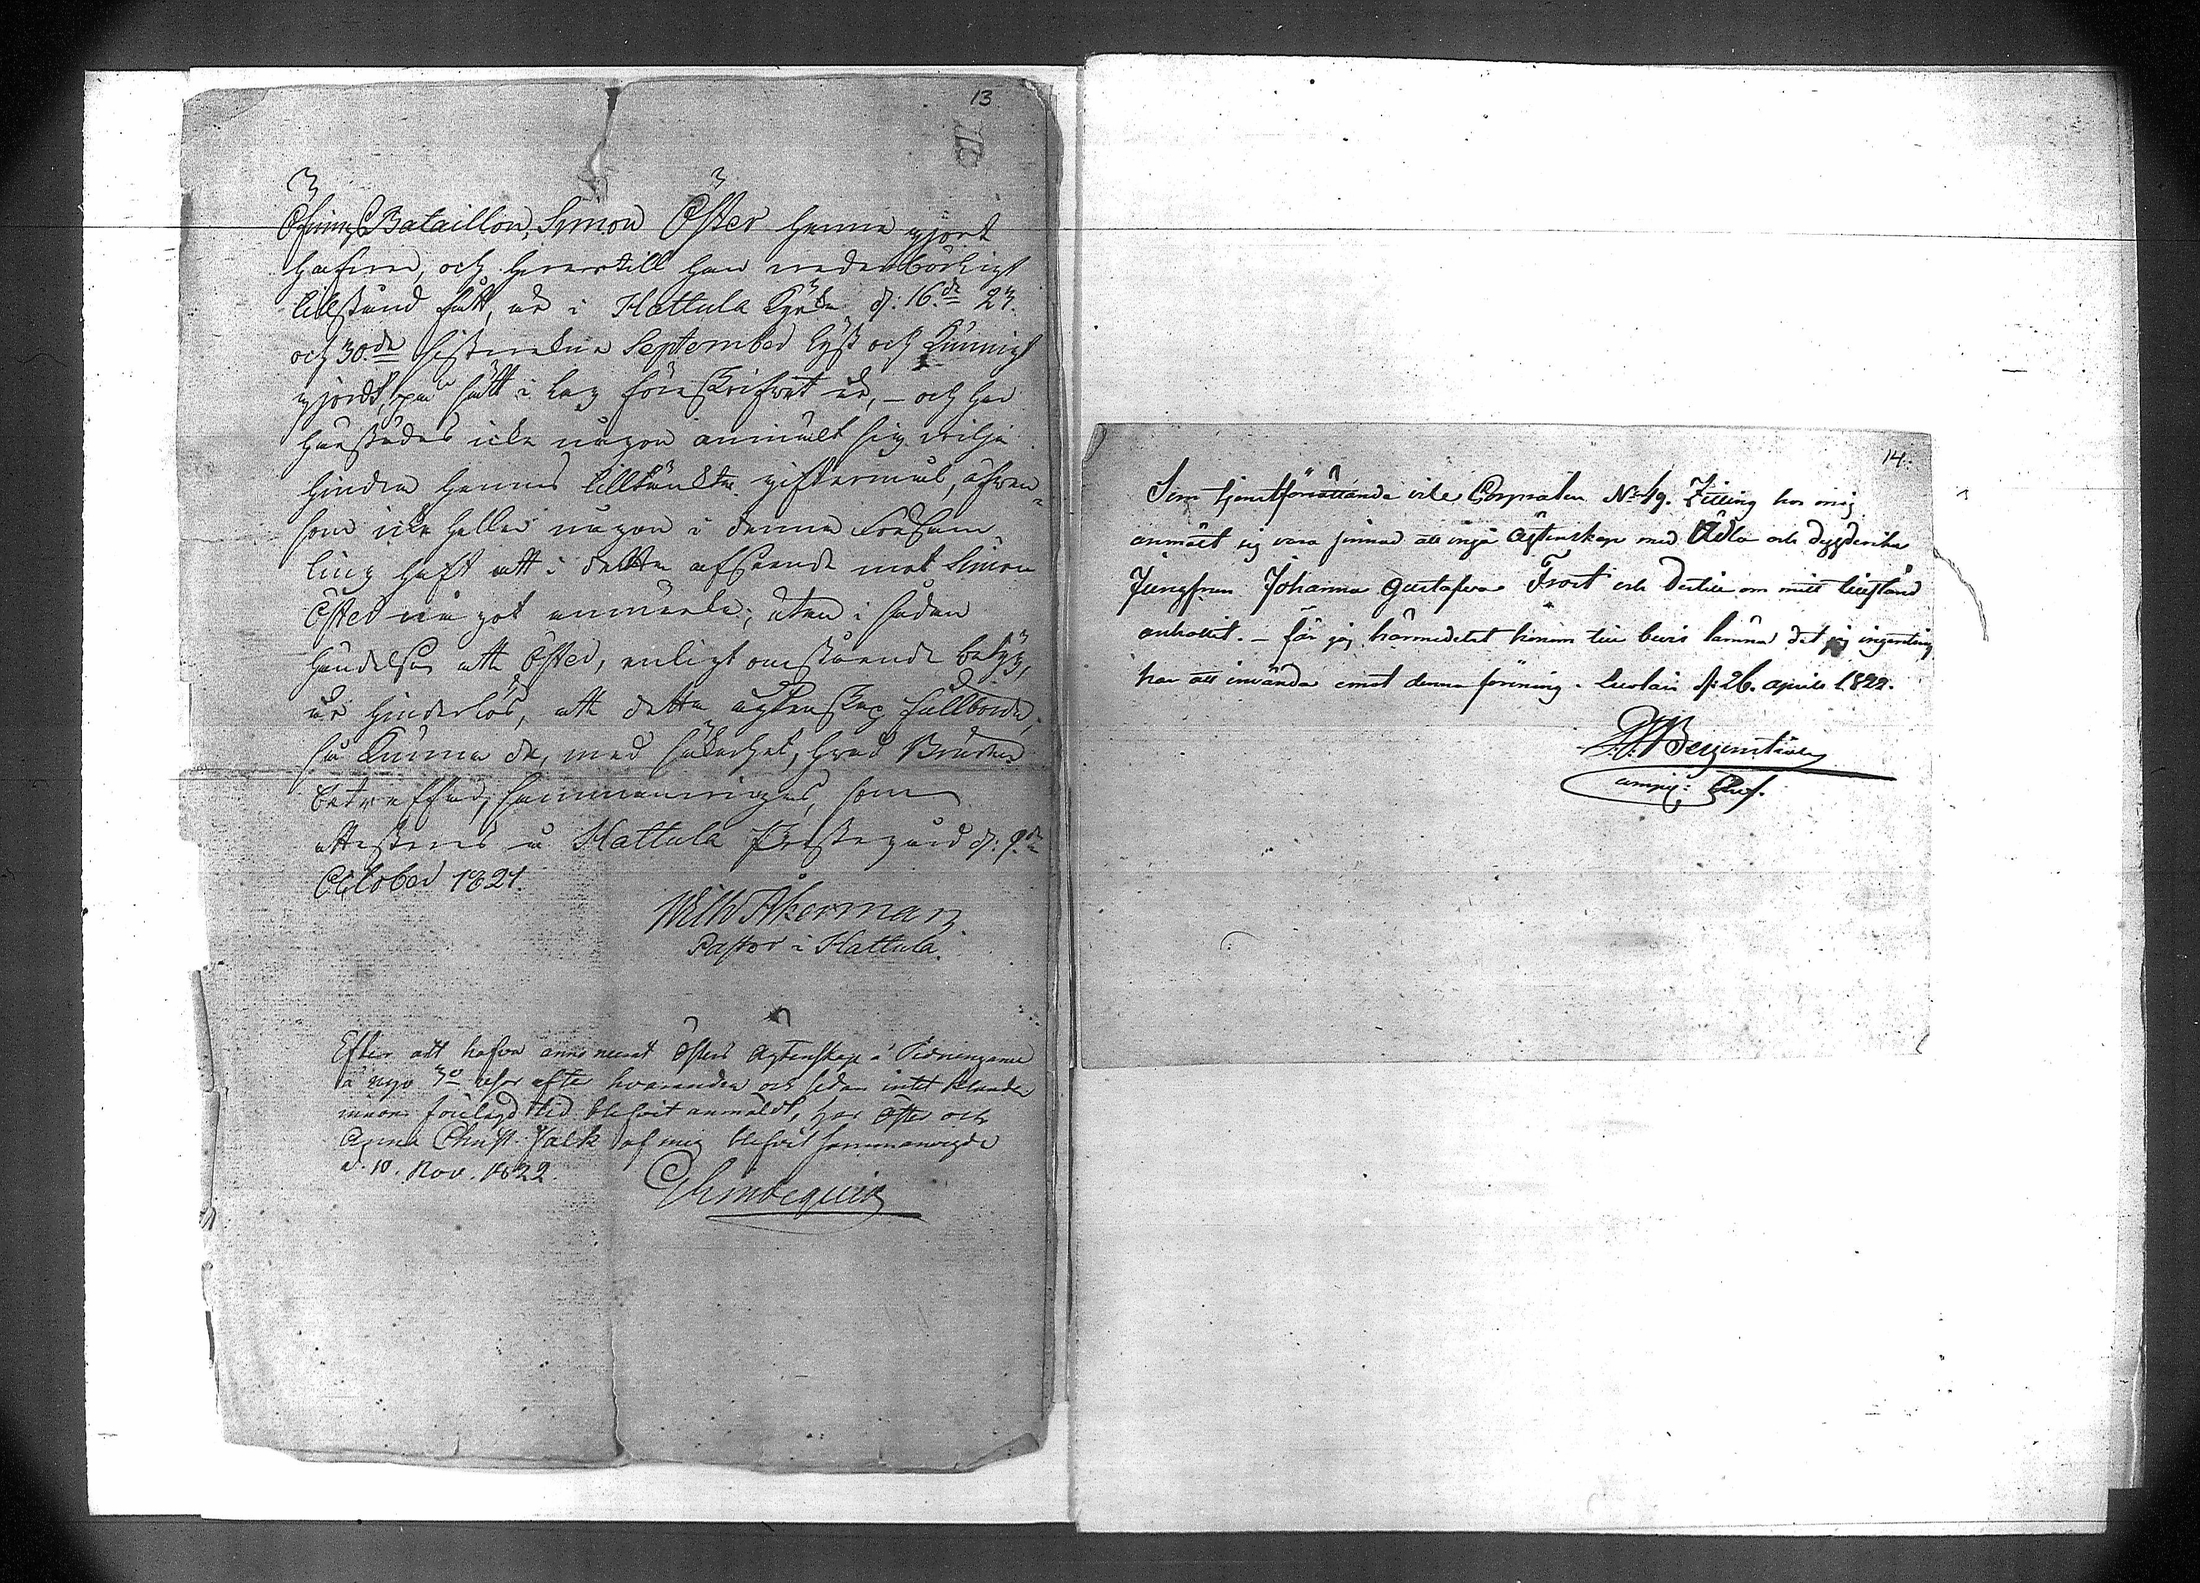 13
Öfnings Bataillon, Simon Öster henne gjort
hafver, och hvartill han vederbörligt
tillstånd fått, är i Hattula Kyrka d: 16de 23.
och 30.de sistvekne September lyst och kunnigt
gjordt, på sätt i Lag föreskrifvet är, – och har
härstädes icke någon anmält sig vilja
hindra hennes tilltänkta giftermål, äfven-
som icke heller någon i denna Försam
ling haft att i detta afseende mot Simon
Öster något anmärka; utan i sådan
händelse att Öster, enligt omstående betyg,
är hinderlös, att detta ägtenskap fullborda,
så kunna de, med säkerhet, hvad Bruden
beträffar, sammanvigas, som
attesteras å Hattula Prestegård d: 9de
October 1821.
Wilh Åkerman
Pastor i Hattula.
Efter att hafva annonceradt Östers Ägtenskap i Tidningarne
å nyo 3ne resor efter hvarandra och sedan intet klander
inom förelagd tid blifvit anmäldt, har Öster och
Anna Christ. Falk af mig blifvit sammanvigde
d. 10. Nov. 1822.
14.
Som tjenstförrättande vice Corporalen No 49. Zilling hos mig
anmält sig vara sinnad att ingå Ägtenskap med Ädla och dygderika
Jungfrun Johanna Gustafva Frost och dertill om mitt tillstånd
anhållit. – får jag härmedelst honom till bevis lämna det jag ingenting
har att invända emot denna förening. d: 26. aprill 1822.
Bergenstråle
Compij: Chef.